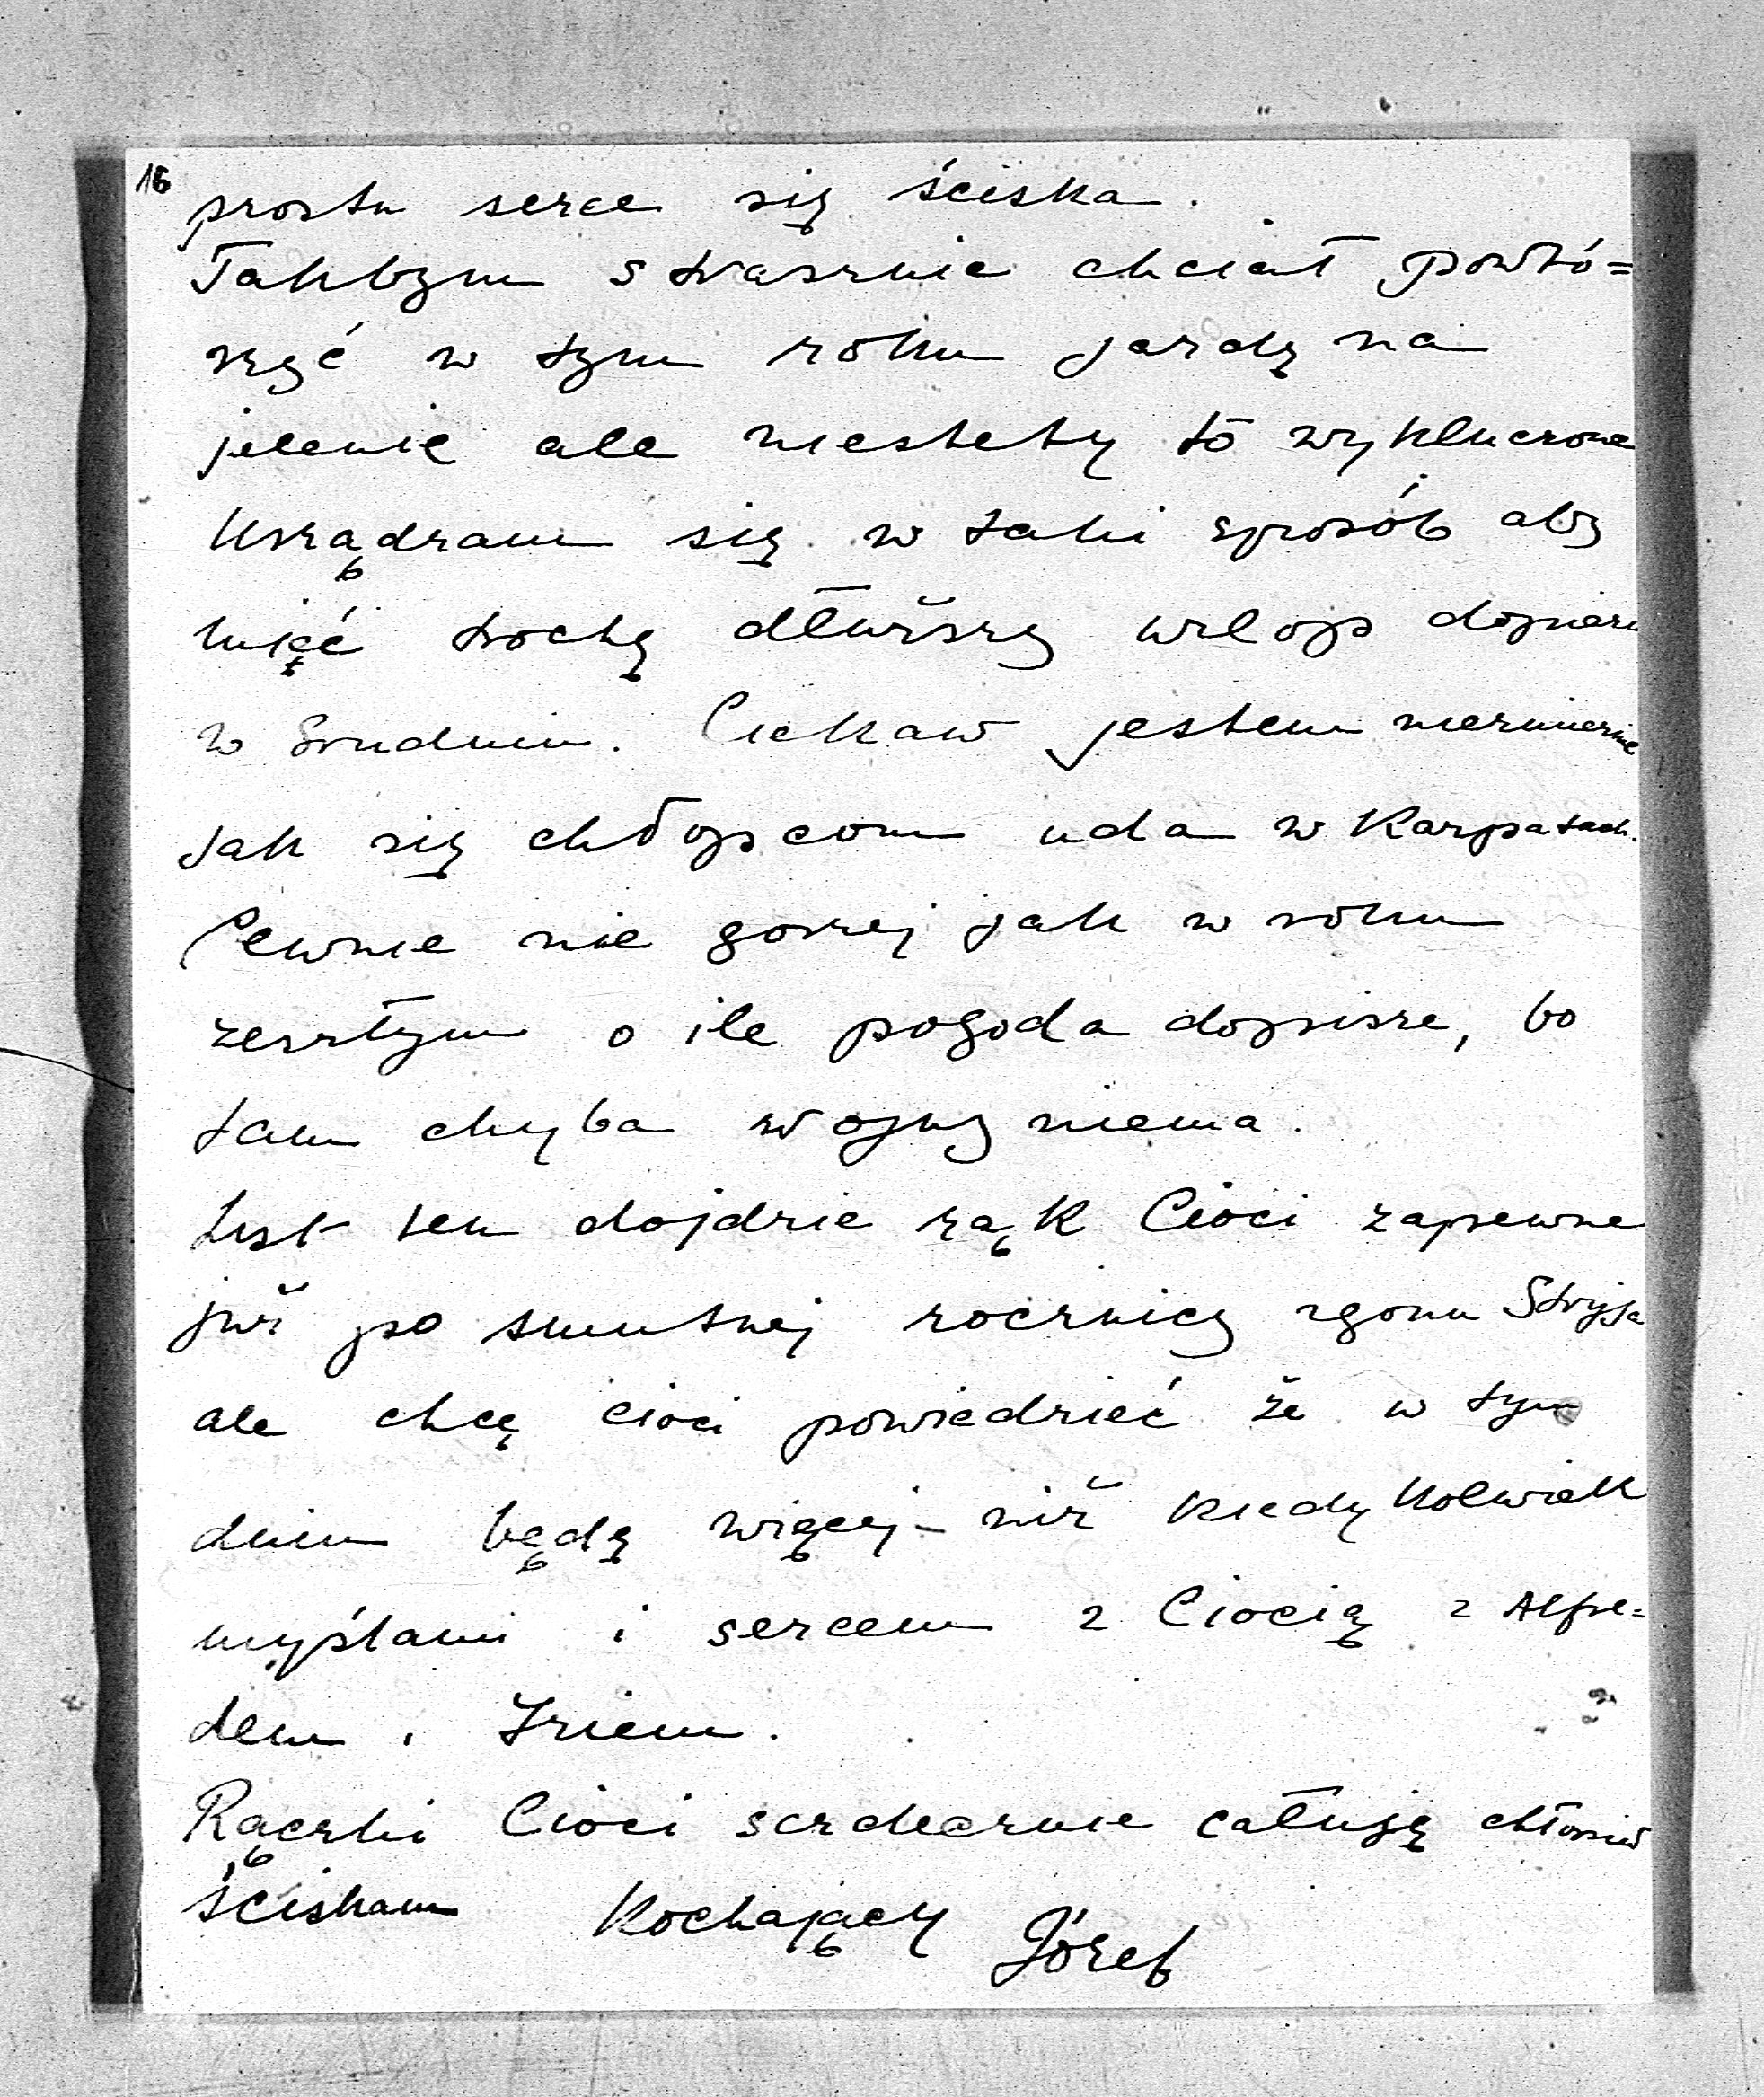 16
prostu serce się ściska.
Takbym strasznie chciał powtó=
rzyć w tym roku jazdę na
jelenie ale niestety to wykluczone
Urządzam się w taki sposób aby
mięć trochę dłuższy urlop dopiero
w Grudniu. Ciekaw jestem niezmiernie
jak się chłopcom uda w Karpatach.
Pewnie nie gorzej jak w roku
zeszłym o ile pogoda dopisze, bo
tam chyba wojny niema.
List ten dojdzie rąk Cioci zapewne
już po smutnej rocznicy zgonu Stryja
ale chcę cioci powiedzieć że w tym
dniu będę więcej niż kiedykolwiek
myślami i sercem z Ciocią z Alfre=
dem i
Rączki Cioci serdecznie całuję
ściskam Kochający
Józef